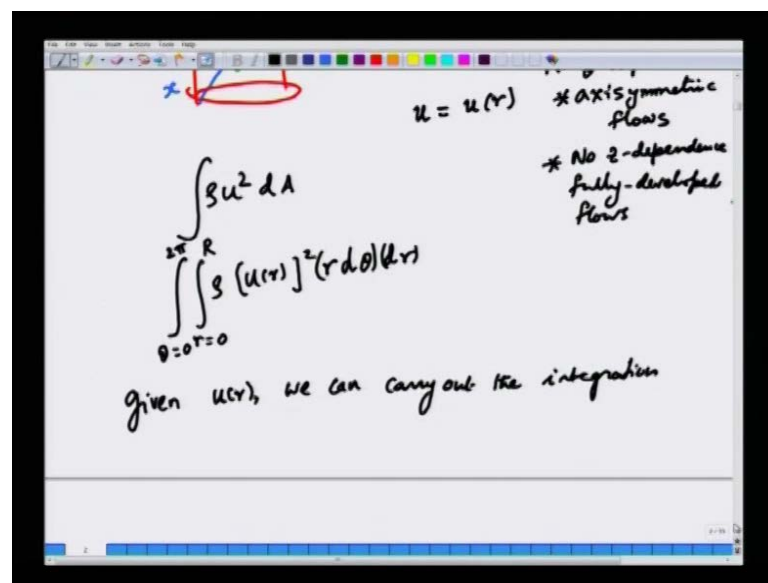 File Edit View Insert Actions Tools Help
x
u = u(r)
* axisymmetric
flows
* No z-dependence
fully-developed
flows
∫ρu² dA
2π R
∫∫ρ [u(r)]² (r dθ)(dr)
θ=0 r=0
Given u(r), we can carry out the integration
2